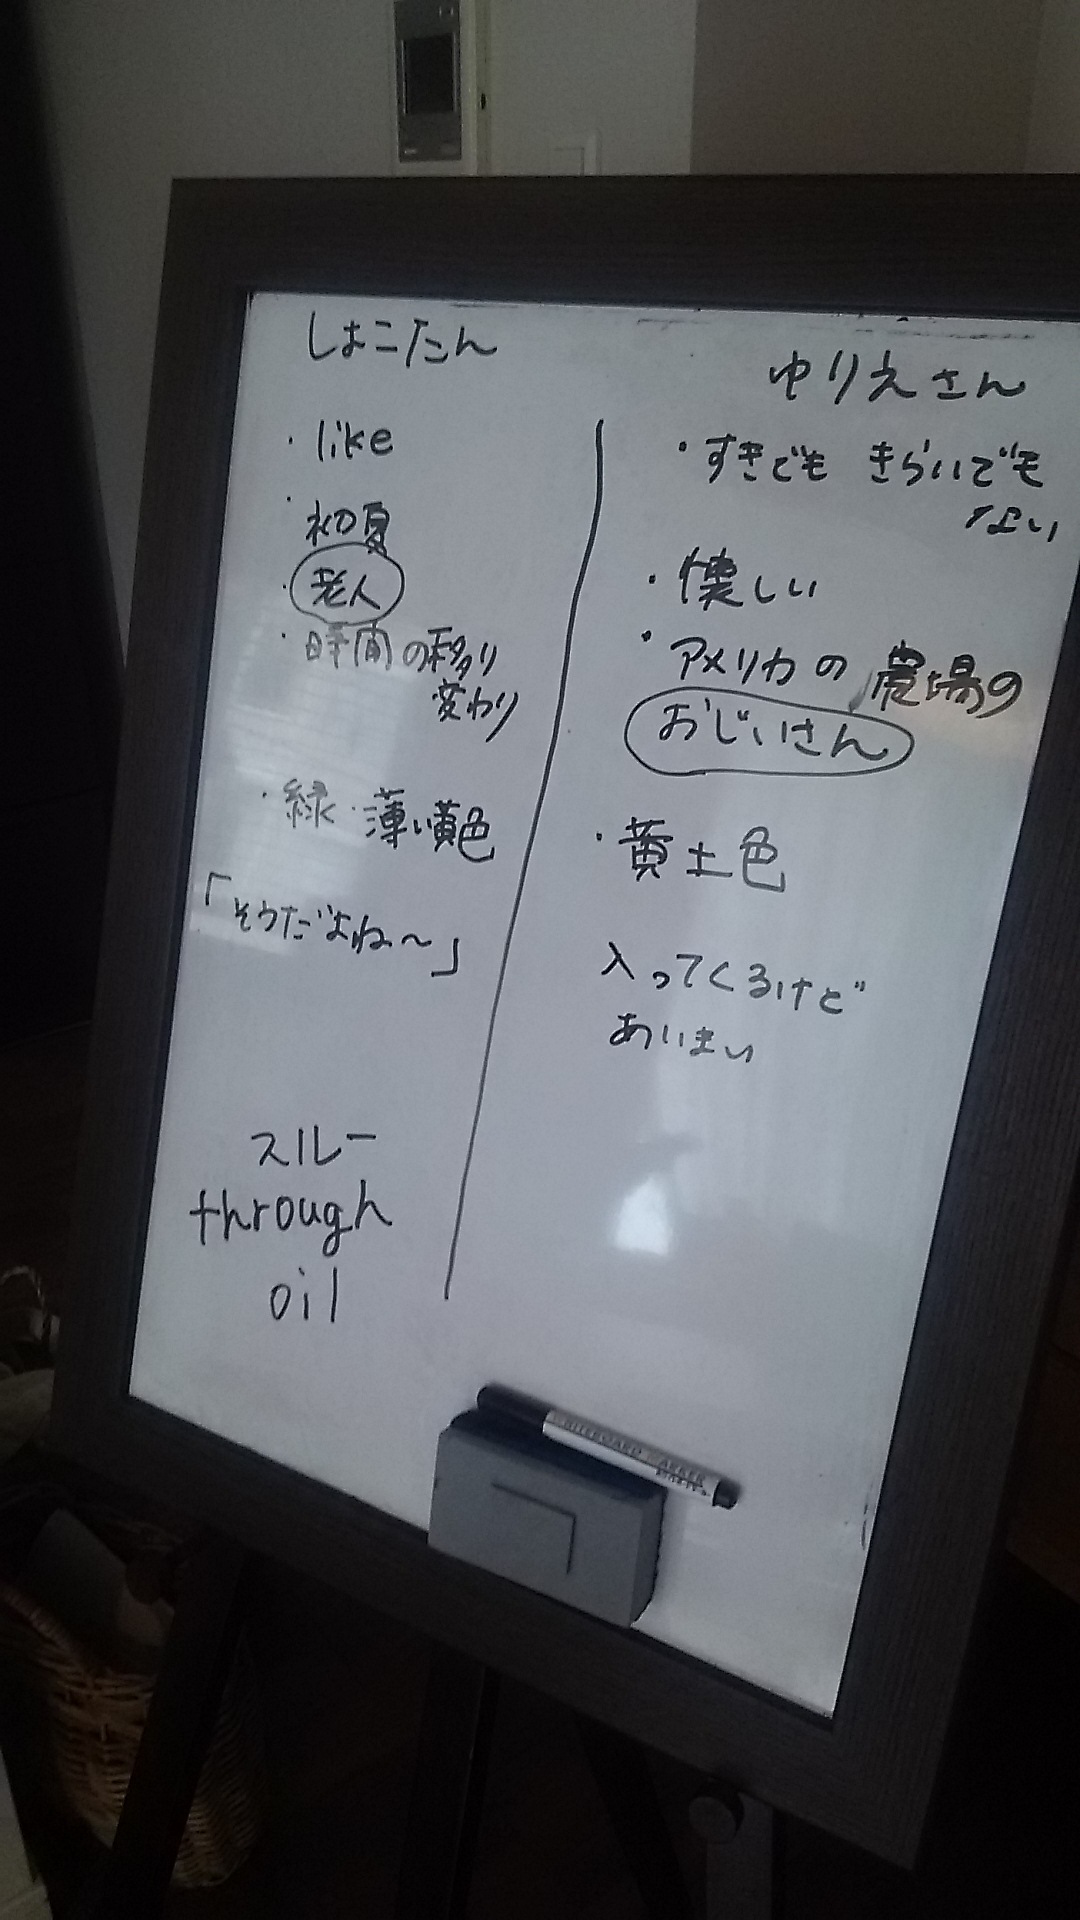 しょこたん
・like
・初夏
・老人
・時間の移り
変わり
・緑・薄い黄色
「そうだよね〜」
スルー
through
oil
ゆりえさん
・すきでも きらいでも
ない
・懐しい
・アメリカの農場の
おじいさん
・黄土色
入ってくるけど
あいまい
WHITEBOARD MARKER